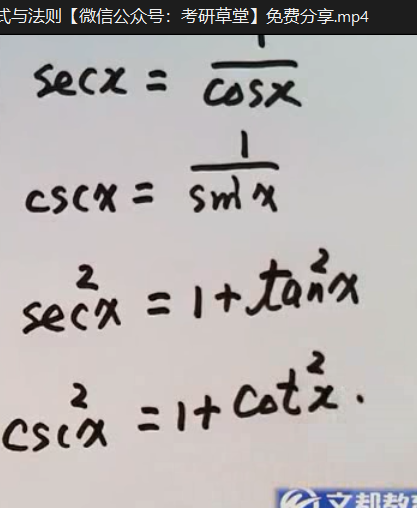 式与法则【微信公众号：考研草堂】免费分享.mp4
secx = 1/cosx
cscx = 1/sinx
sec²x = 1 + tan²x
csc²x = 1 + cot²x.
文都教育